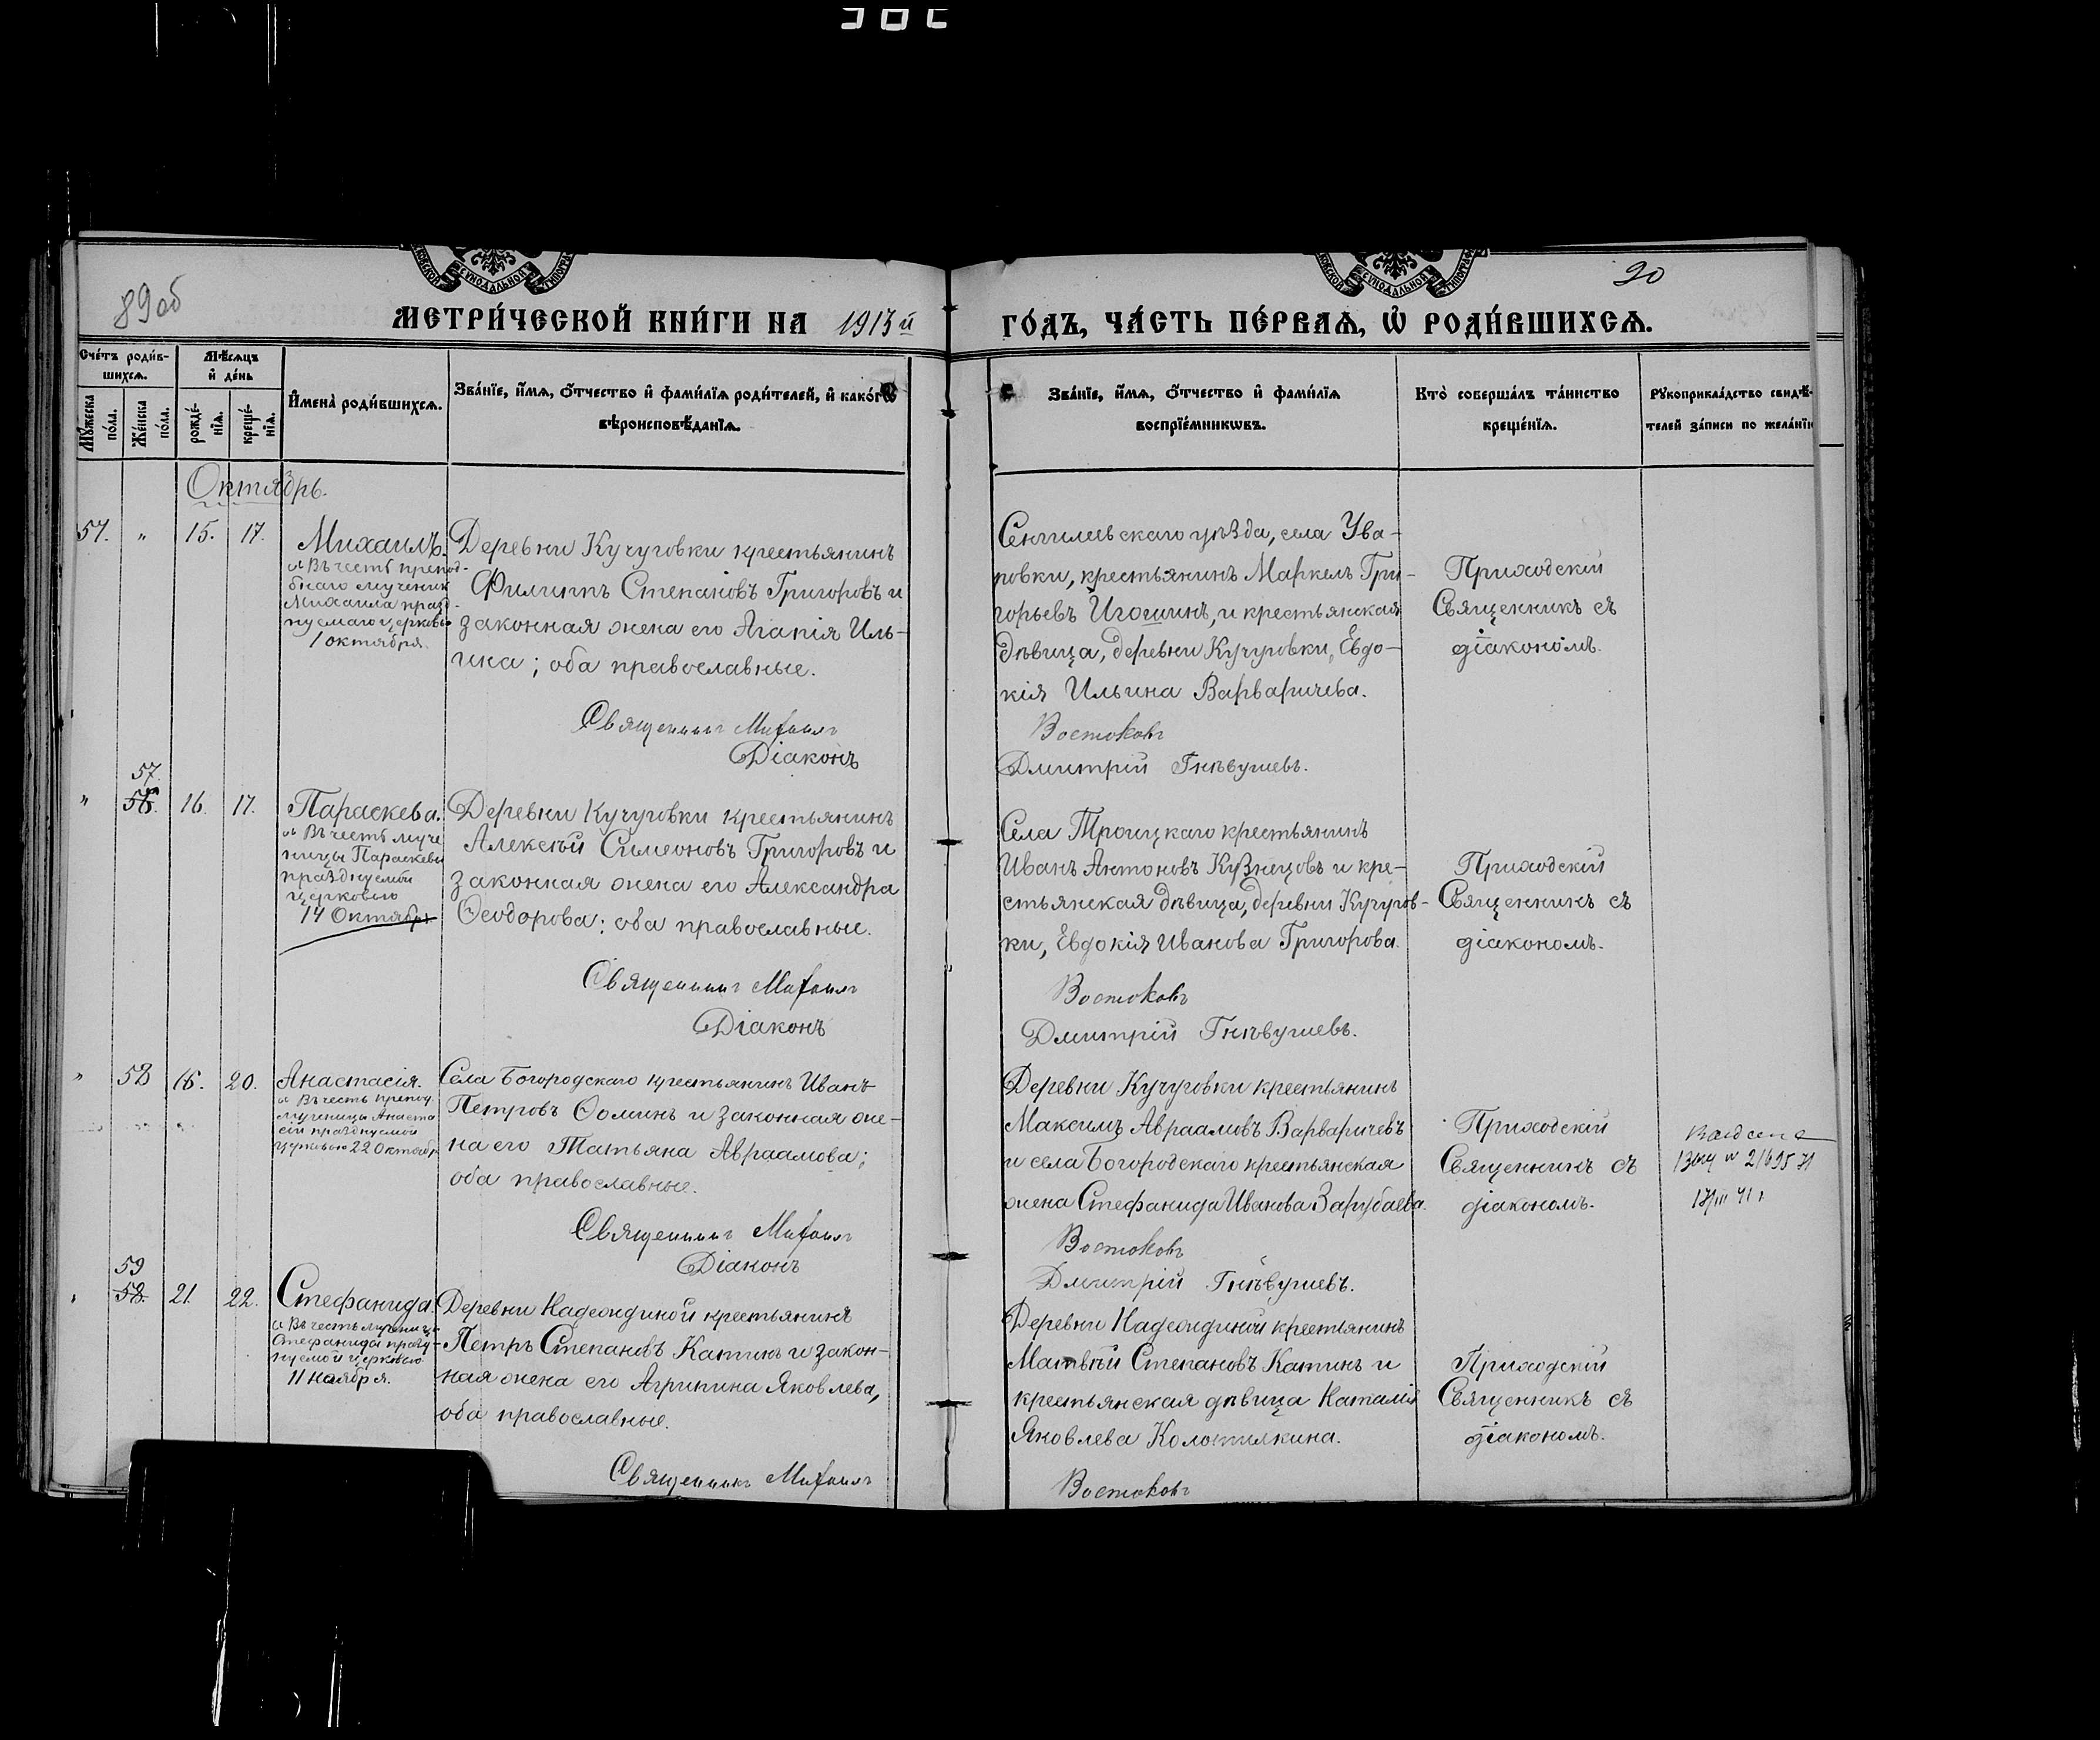 89об
90
МЕТРИ́ЧЕСКОЙ КНИ́ГИ НА 1913 й
ГО́ДЪ, ЧА́СТЬ ПЕ́РВАѦ, Ѡ҆ РОДИ́ВШИХСѦ.
Сче́тъ роди́в-
шихсѧ.
Мꙋ́жеска
по́ла.
Же́нска
по́ла.
Мѣ́сѧцъ
и҆ де́нь
рожде́-
нїѧ.
креще́-
нїѧ.
И҆мена̀ роди́вшихсѧ.
Зва́нїе, и҆́мѧ, ѻ҆́тчество и҆ фами́лїѧ роди́телей, и҆ како́гѡ
вѣроисповѣ́данїѧ.
Зва́нїе, и҆́мѧ, ѻ҆́тчество и҆ фами́лїѧ
воспрїе́мникѡвъ.
Кто̀ соверша́лъ та́инство
креще́нїѧ.
Рꙋкоприкла́дство свидѣ́-
телей за́писи по жела́нїю
Октябрь.
57. " 15. 17.
Михаилъ.
Въ честь препод-
бнаго мученик
Михаила празд-
нуемаго церковью
1 октября.
Деревни Кучуровки крестьянинъ
Филиппъ Степановъ Григоровъ и
законная жена его Агапія Иль-
ина; оба православные.
Священникъ Михаилъ
Діаконъ
Сенгилеевскаго уѣзда, села Ува-
ровки, крестьянинъ Маркелъ Гри-
горьевъ Игошинъ, и крестьянская
дѣвица, деревни Кучуровки, Евдо-
кія Ильина Варваричева.
Востоковъ
Дмитрій Гнѣвушевъ.
Приходскій
Священникъ съ
діакономъ.
57
" 56. 16. 17.
Параскева.
Въ честь муче
ницы Параскевы
празднуемой
церковью
14 Октября
Деревни Кучуровки крестьянинъ
Алексѣй Симеоновъ Григоровъ и
законная жена его Александра
Ѳеодорова; оба православные.
Священникъ Михаилъ
Діаконъ
Села Троицкаго крестьянинъ
Иванъ Антоновъ Кузнецовъ и кре-
стьянская дѣвица, деревни Кучуров-
ки, Евдокія Иванова Григорова.
Востоковъ
Дмитрій Гнѣвушевъ.
Приходскій
Священникъ съ
діакономъ.
" 58 16. 20.
Анастасія.
Въ честь препод.
мученицы Анаста
сіи празднуемой
церковью 22 Октябр
Села Богородскаго крестьянинъ Иванъ
Петровъ Ѳоминъ и законная же-
на его Татьяна Авраамова;
оба православные.
Священникъ Михаилъ
Діаконъ
Деревни Кучуровки крестьянинъ
Максимъ Авраамовъ Варваричевъ
и села Богородскаго крестьянская
жена Стефанида Иванова Зарубаева.
Востоковъ
Дмитрій Гнѣвушевъ.
Приходскій
Священникъ съ
діакономъ.
59
" 58. 21. 22.
Стефанида.
Въ честь мучениц
Стефаниды празд-
нуемой церковью
11 ноября.
Деревни Надеждиной крестьянинъ
Петръ Степановъ Катинъ и закон-
ная жена его Агрипина Яковлева,
оба православные.
Священникъ Михаилъ
Деревни Надеждиной крестьянинъ
Матвѣй Степановъ Катинъ и
крестьянская дѣвица Наталія
Яковлева Колотилкина.
Востоковъ
Приходскій
Священникъ съ
діакономъ.